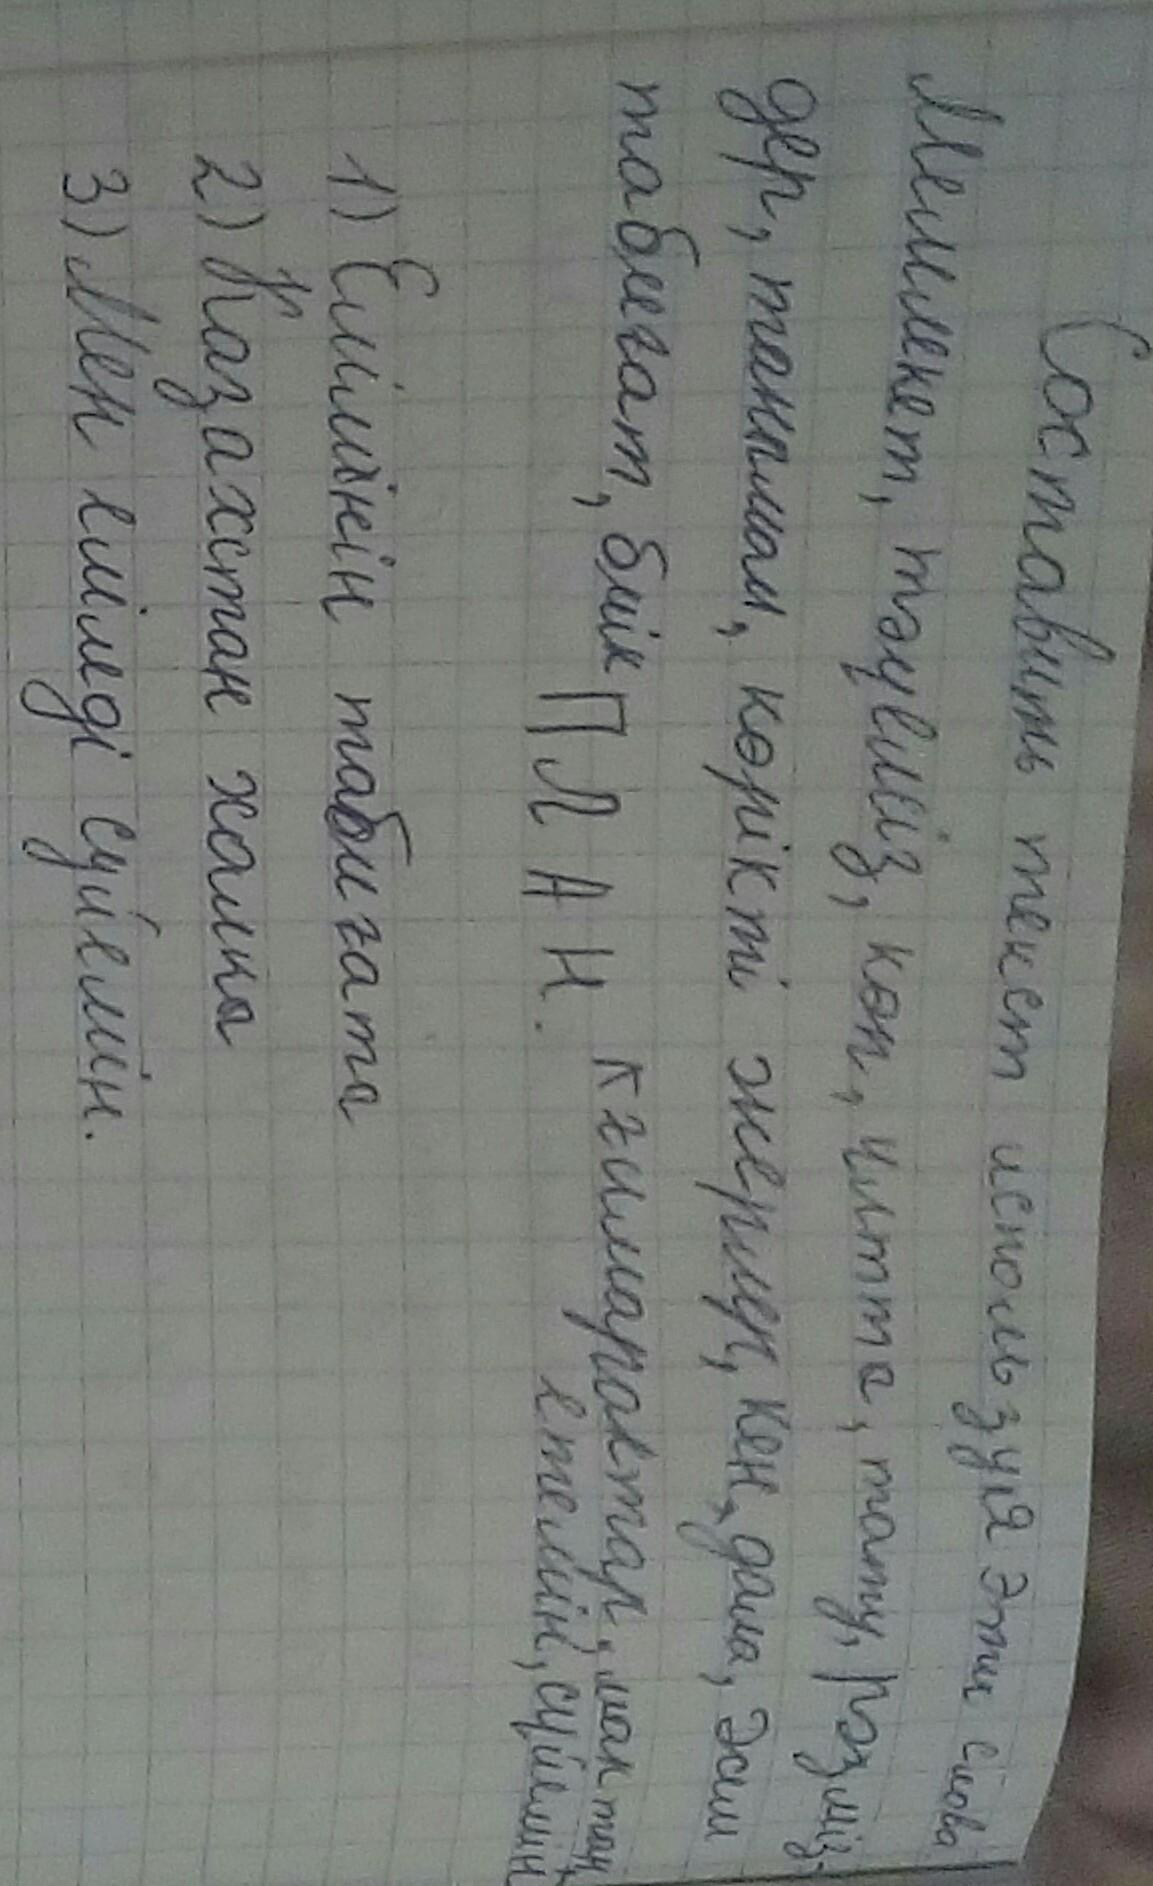 Составить текст используя эти слова
Мемлекет, тәуелсіз, көп, ұлтты, тату, рәміз-
дер, таныман, көрікті жерлер, кең, дала, әсем
табиғат, биік ғимараттар, мақтан
етемін, сүйемін
ПЛАН.
1) Елімнің табиғаты
2) Казахстан халқы
3) Мен елімді сүйемін.